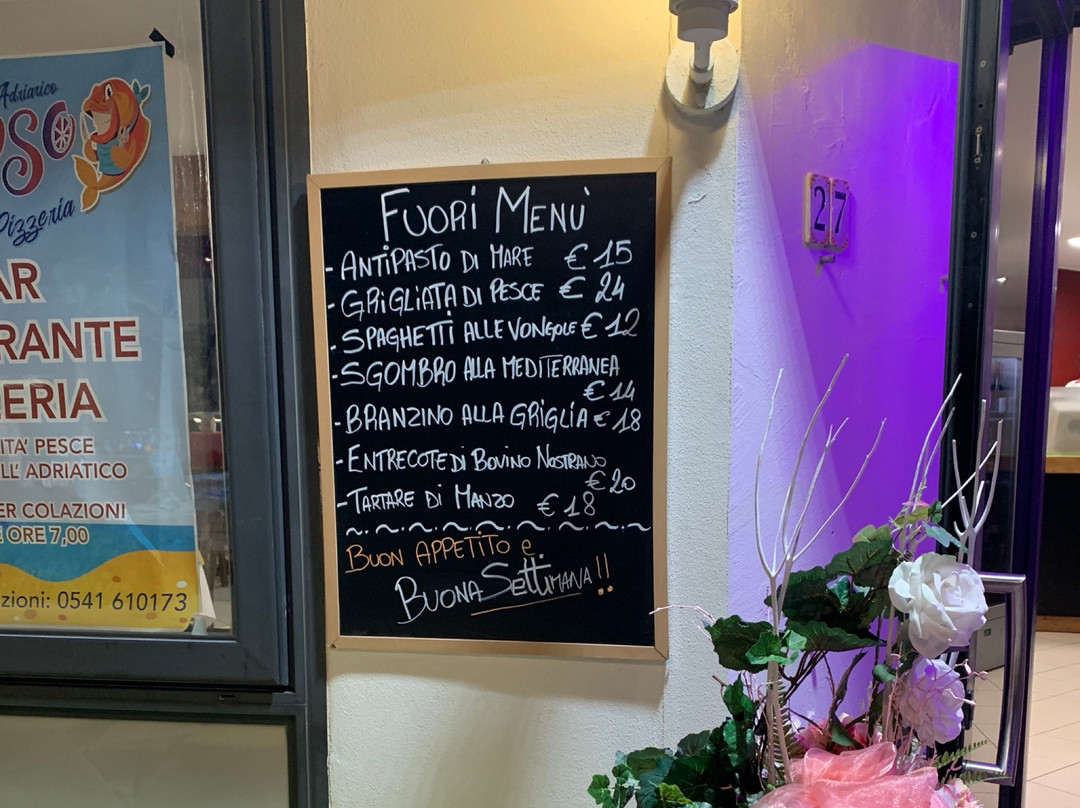 Adriatico
Pizzeria
AR
RANTE
ERIA
ITA' PESCE
LL' ADRIATICO
ER COLAZIONI
E ORE 7,00
zioni: 0541 610173
FUORI MENÙ
- ANTIPASTO DI MARE € 15
- GRIGLIATA DI PESCE € 24
- SPAGHETTI ALLE VONGOLE € 12
- SGOMBRO ALLA MEDITERRANEA
€ 14
- BRANZINO ALLA GRIGLIA € 18
- ENTRECOTE DI BOVINO NOSTRANO
€ 20
- TARTARE DI MANZO € 18
BUON APPETITO e
BUONA SETTIMANA!!
27